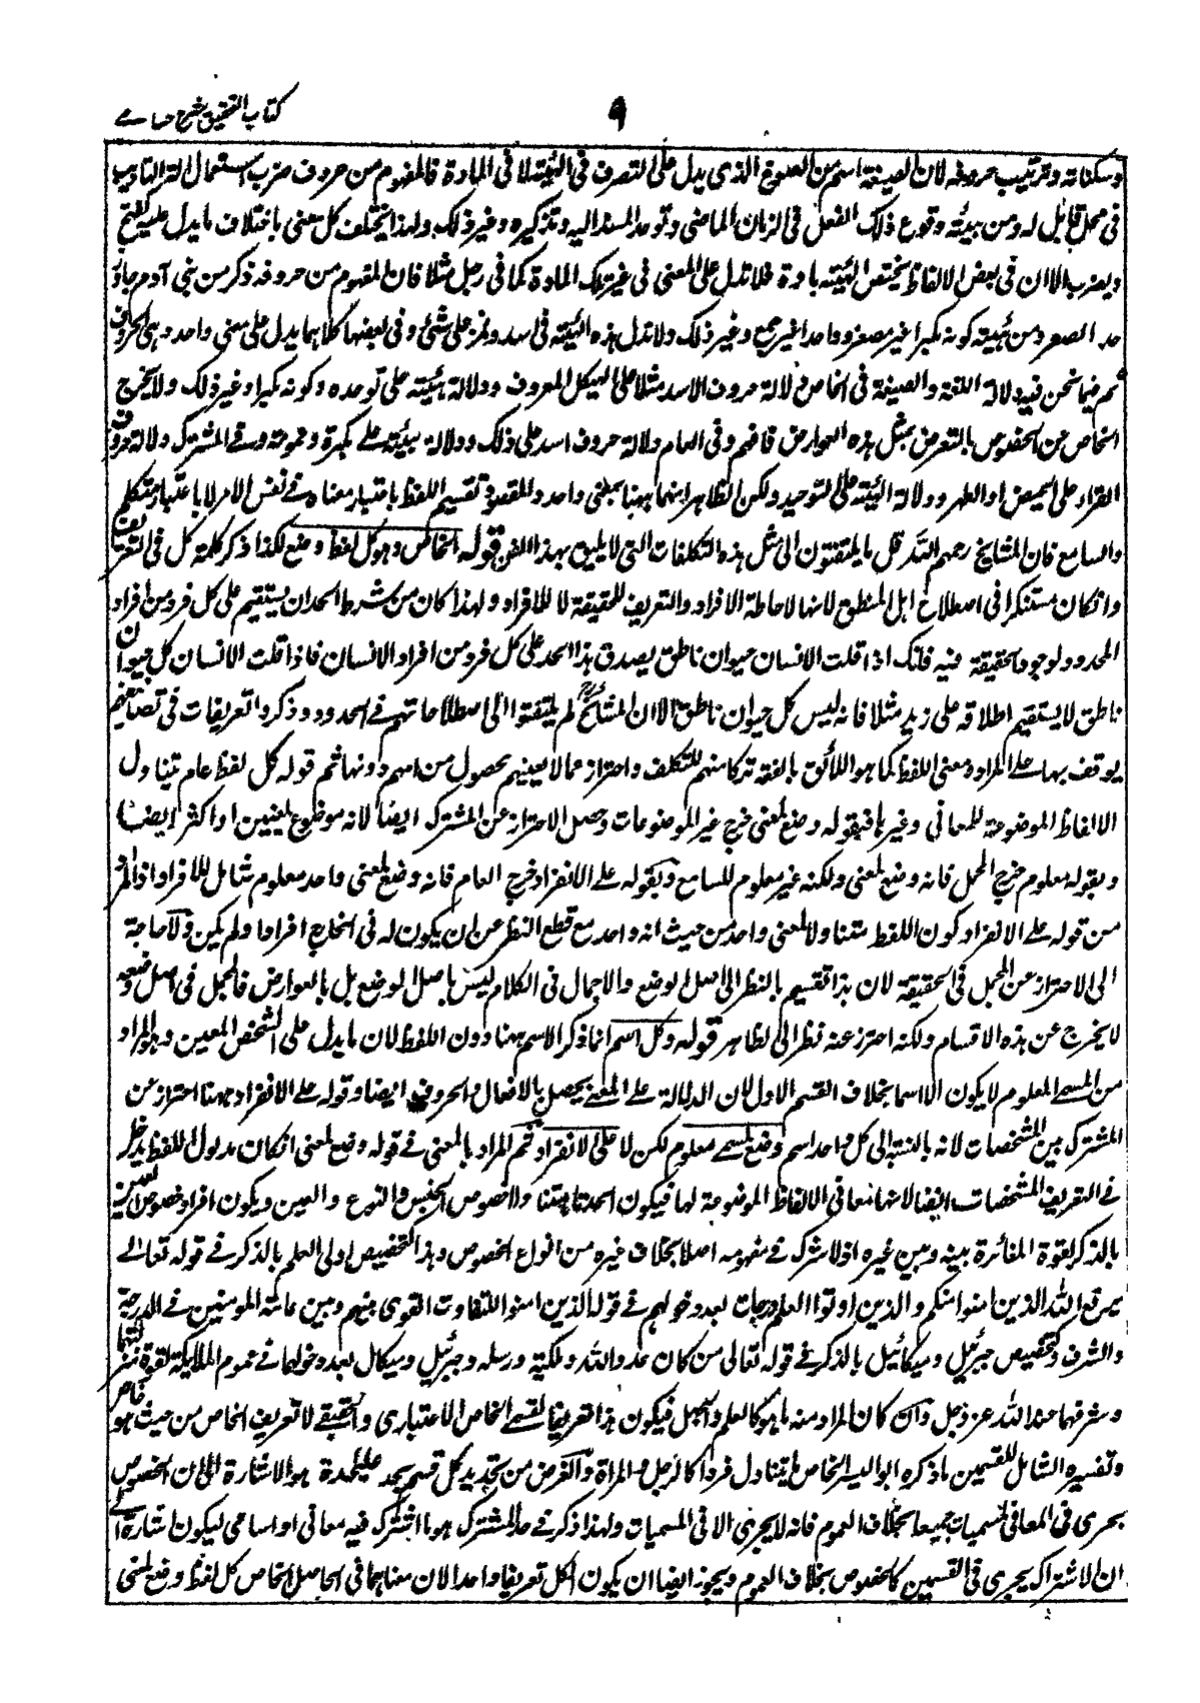 كتاب التحقيق شرح حسامى
٩
وسكناته وترتيب حروفه لان الصيغة اسم من الصوغ الذى يدل على التصرف فى الهيئة لا فى المادة فالمفهوم من حروف ضرب استعمال الة التاديب
فى محل قابل له ومن هيئته وقوع ذلك الفعل فى الزمان الماضى وتوحد المسند اليه وتذكيره وغير ذلك ولهذا يختلف كل معنى باختلاف ما يدل عليه كتفتح
ويضرب الا ان فى بعض الالفاظ يختص الهيئة بمادة فلا تدل على المعنى فى غير تلك المادة كما فى رجل مثلا فان المفهوم من حروفه ذكر من بنى آدم جاوز
حد الصغر ومن هيئته كونه مكبرا غير مصغر وواحدا غير جمع وغير ذلك ولا تدل هذه الهيئة فى اسد ونمر على شئ وفى بعضها كلاهما يدل على معنى واحد وهى الحروف
ثم فيما نحن فيه دلالة اللغة والصيغة فى الخاص دلالة حروف الاسد مثلا على الهيكل المعروف ودلالة هيئته على توحده وكونه مكبرا وغير ذلك ولا يخرج
الخاص عن الخصوص بالتعرض بمثل هذه العوارض فافهم وفى العام دلالة حروف اسد على ذلك ودلالة هيئته على تكبره وعمومه وفى المشترك دلالة حروف
القرء على الحيض او الطهر ودلالة الهيئة على التوحيد ولكن الظاهر انهما ههنا بمعنى واحد والمقصود تقسيم اللفظ باعتبار معناه فى نفس الامر لا باعتبار متكلم
والسامع فان المشايخ رحمهم الله قل ما يلتفتون الى مثل هذه التكلفات التى لا يليق بهذا الفن قوله الخاص وهو كل لفظ وضع لكذا ذكر كلمة كل فى التعريف
وان كان مستنكرا فى اصطلاح اهل المنطق لانها لاحاطة الافراد والتعريف للحقيقة لا للافراد ولهذا كان من شرط الحد ان يستقيم على كل فرد من افراد
المحدود لوجود الحقيقة فيه فانك اذا قلت الانسان حيوان ناطق يصدق هذا الحد على كل فرد من افراد الانسان فاذا قلت الانسان كل حيوان
ناطق لا يستقيم اطلاقه على زيد مثلا فانه ليس كل حيوان ناطق الا ان المشايخ لم يلتفتوا الى اصطلاحاتهم فى الحدود وذكروا تعريفات فى تصانيفهم
يوقف بها على المراد ومعنى اللفظ كما هو اللائق بالفقه تركا منهم للتكلف واحترازا عما لا يعنيهم بحصول مرامهم دونها ثم قوله كل لفظ عام تتناول
الالفاظ الموضوعة للمعانى وغيرها فبقوله وضع لمعنى خرج غير الموضوعات وحصل الاحتراز عن المشترك ايضا لانه موضوع لمعنيين او اكثر ايضا
وبقوله معلوم خرج المجمل فانه وضع لمعنى ولكنه غير معلوم للسامع وبقوله على الانفراد خرج العام فانه وضع لمعنى واحد معلوم شامل للافراد اذ المراد
من قوله على الانفراد كون اللفظ متناولا لمعنى واحد من حيث انه واحد مع قطع النظر عن ان يكون له فى الخارج افراد او لم يكن ولا حاجة
الى الاحتراز عن المجمل فى الحقيقة لان هذا تقسيم بالنظر الى اصل الوضع والاجمال فى الكلام ليس باصل الوضع بل بالعوارض فالمجمل فى اصل وضعه
لا يخرج عن هذه الاقسام ولكنه احترز عنه نظرا الى الظاهر قوله وكل اسم انما ذكر الاسم ههنا دون اللفظ لان ما يدل على الشخص المعين وهو المراد
من المسمى المعلوم لا يكون الا اسما بخلاف القسم الاول لان الدلالة على المعنى يحصل بالافعال والحروف ايضا وقوله على الانفراد ههنا احتراز عن
المشترك بين المشخصات لانه بالنسبة الى كل واحد اسم وضع لمسمى معلوم لكن لا على الانفراد ثم المراد بالمعنى فى قوله وضع لمعنى ان كان مدلول اللفظ يدخل
فى التعريف المشخصات ايضا لانها معانى الالفاظ الموضوعة لها فيكون الحد متناولا لخصوص الجنس والنوع والعين ويكون افراد خصوص العين
بالذكر لقوة المغائرة بينه وبين غيره اذ لا شرك فى مفهومه اصلا بخلاف غيره من انواع الخصوص وهذا كتخصيص اولى العلم بالذكر فى قوله تعالى
يرفع الله الذين امنوا منكم والذين اوتوا العلم درجات بعد دخولهم فى قوله الذين امنوا للتفاوت القوى بينهم وبين عامة المومنين فى الدرجة
والشرف وكتخصيص جبرئيل وميكائيل بالذكر فى قوله تعالى من كان عدوا لله وملئكته ورسله وجبرئيل وميكال بعد دخولهما فى عموم الملائكة لقوة منزلتهما
وشرفهما عند الله عز وجل وان كان المراد منه ما هو كالعلم والجهل فيكون هذا تعريفا لقسمى الخاص الاعتبارى والحقيقى لا تعريف الخاص من حيث هو خاص
وتفسيره الشامل للقسمين ما ذكره ابو اليسر الخاص ما يتناول فردا كالرجل والمراة والغرض من تحديد كل قسم بحد عليحدة هو الاشارة الى ان الخصوص
يجرى فى المعانى والمسميات جميعا بخلاف العموم فانه لا يجرى الا فى المسميات ولهذا ذكر فى حد المشترك هو ما اشترك فيه معانى او اسامى ليكون اشارة الى
ان الاشتراك يجرى فى القسمين كالخصوص بخلاف العموم ويجوز ايضا ان يكون الكل تعريفا واحدا لان معناهما فى الحاصل الخاص كل لفظ وضع لمعنى